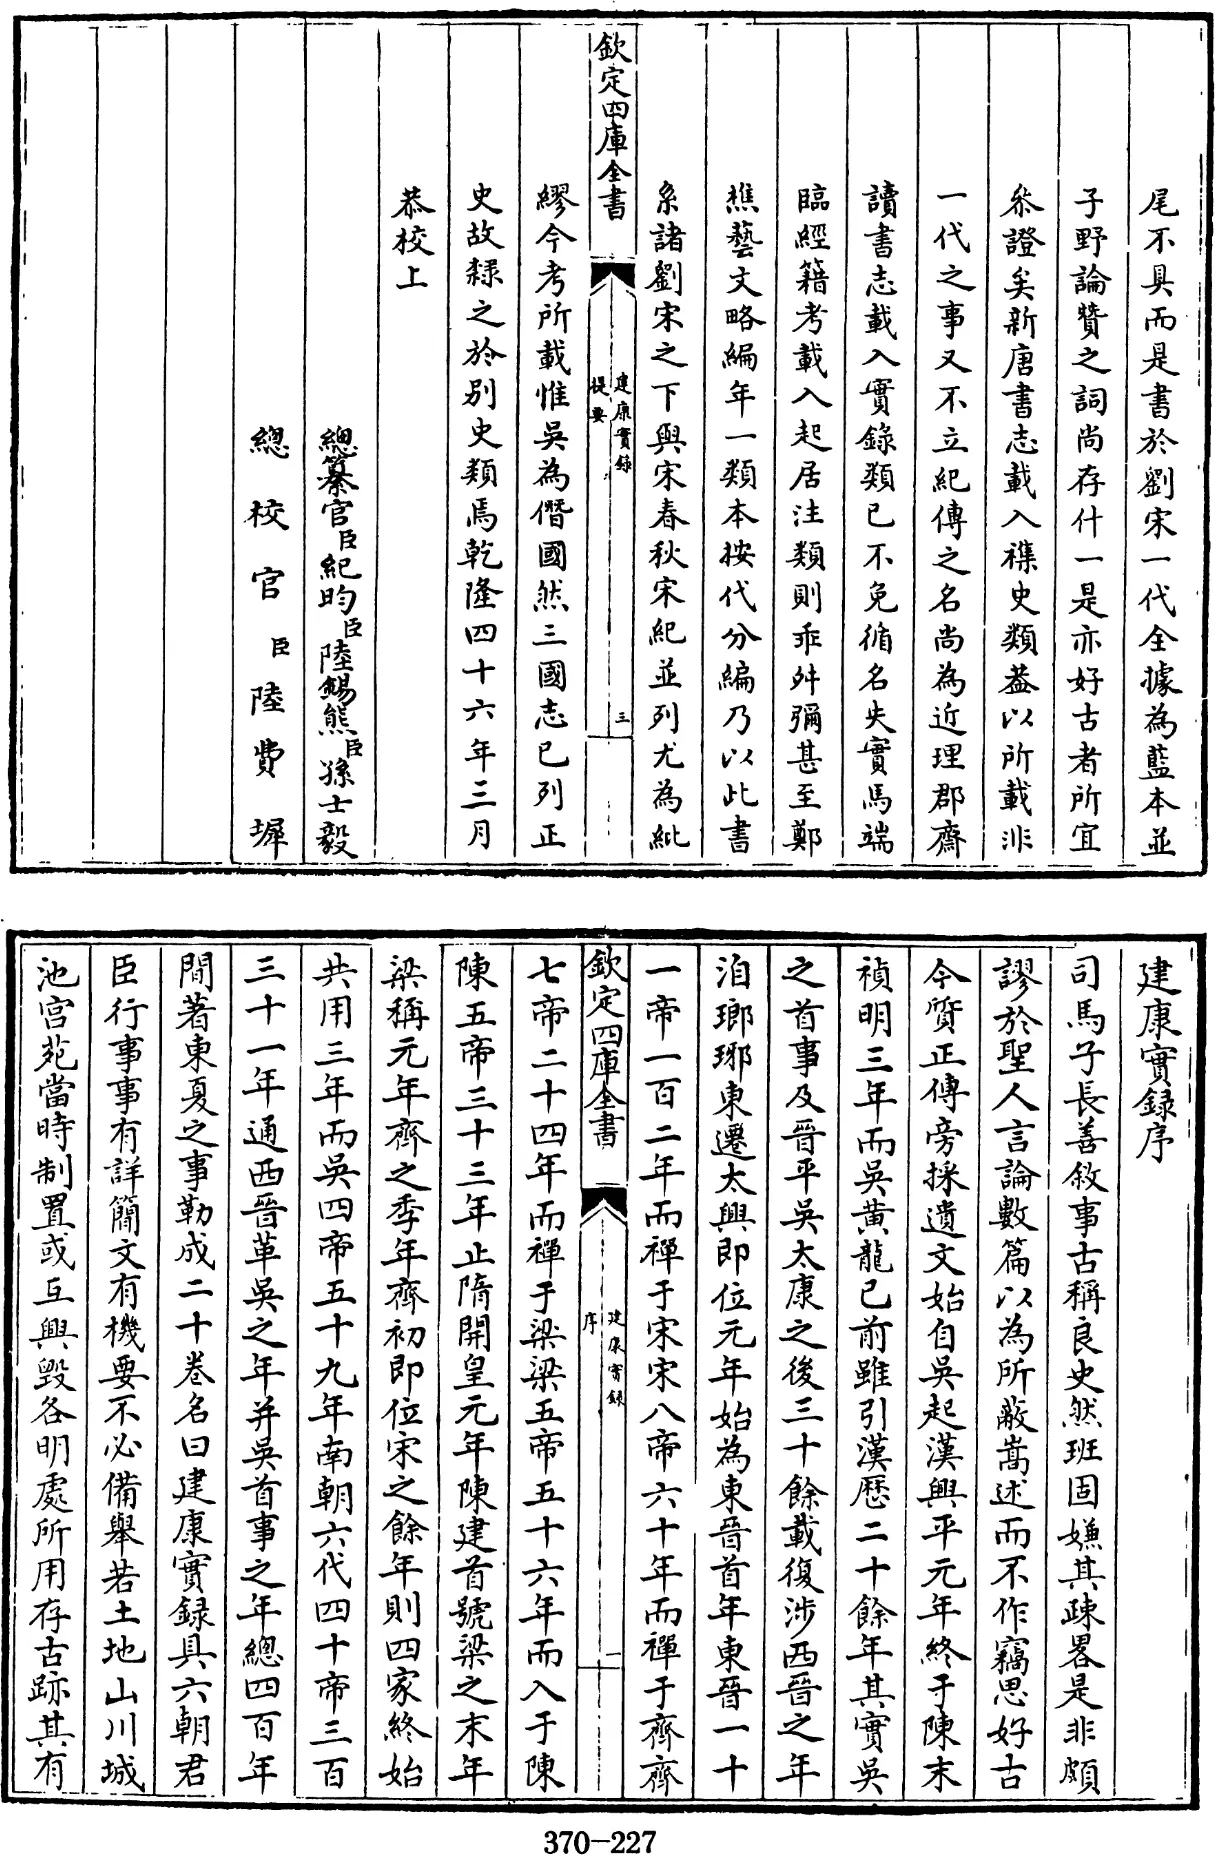 尾不具而是書於劉宋一代全據為藍本並
子野論贊之詞尚存什一是亦好古者所宜
叅證矣新唐書志載入襍史類葢以所載非
一代之事又不立紀傳之名尚為近理郡齋
讀書志載入實錄類已不免循名失實馬端
臨經籍考載入起居注類則乖舛彌甚至鄭
樵藝文略編年一類本按代分編乃以此書
系諸劉宋之下與宋春秋宋紀並列尤為紕
欽定四庫全書
建康實錄
提要
三
繆今考所載惟吳為僭國然三國志已列正
史故隸之於別史類焉乾隆四十六年三月
恭校上
總纂官臣紀昀臣陸錫熊臣孫士毅
總校官臣陸費墀
建康實録序
司馬子長善敘事古稱良史然班固嫌其疎畧是非頗
謬於聖人言論數篇以為所蔽嵩述而不作竊思好古
今質正傳旁採遺文始自吳起漢興平元年終于陳末
禎明三年而吳黃龍已前雖引漢歷二十餘年其實吳
之首事及晉平吳太康之後三十餘載復涉西晉之年
洎瑯琊東遷太興即位元年始為東晉首年東晉一十
一帝一百二年而禪于宋宋八帝六十年而禪于齊齊
欽定四庫全書
建康實録
序
一
七帝二十四年而禪于梁梁五帝五十六年而入于陳
陳五帝三十三年止隋開皇元年陳建首號梁之末年
梁稱元年齊之季年齊初即位宋之餘年則四家終始
共用三年而吳四帝五十九年南朝六代四十帝三百
三十一年通西晉革吳之年并吳首事之年總四百年
間著東夏之事勒成二十卷名曰建康實録具六朝君
臣行事事有詳簡文有機要不必備舉若土地山川城
池宮苑當時制置或互興毀各明處所用存古跡其有
370-227